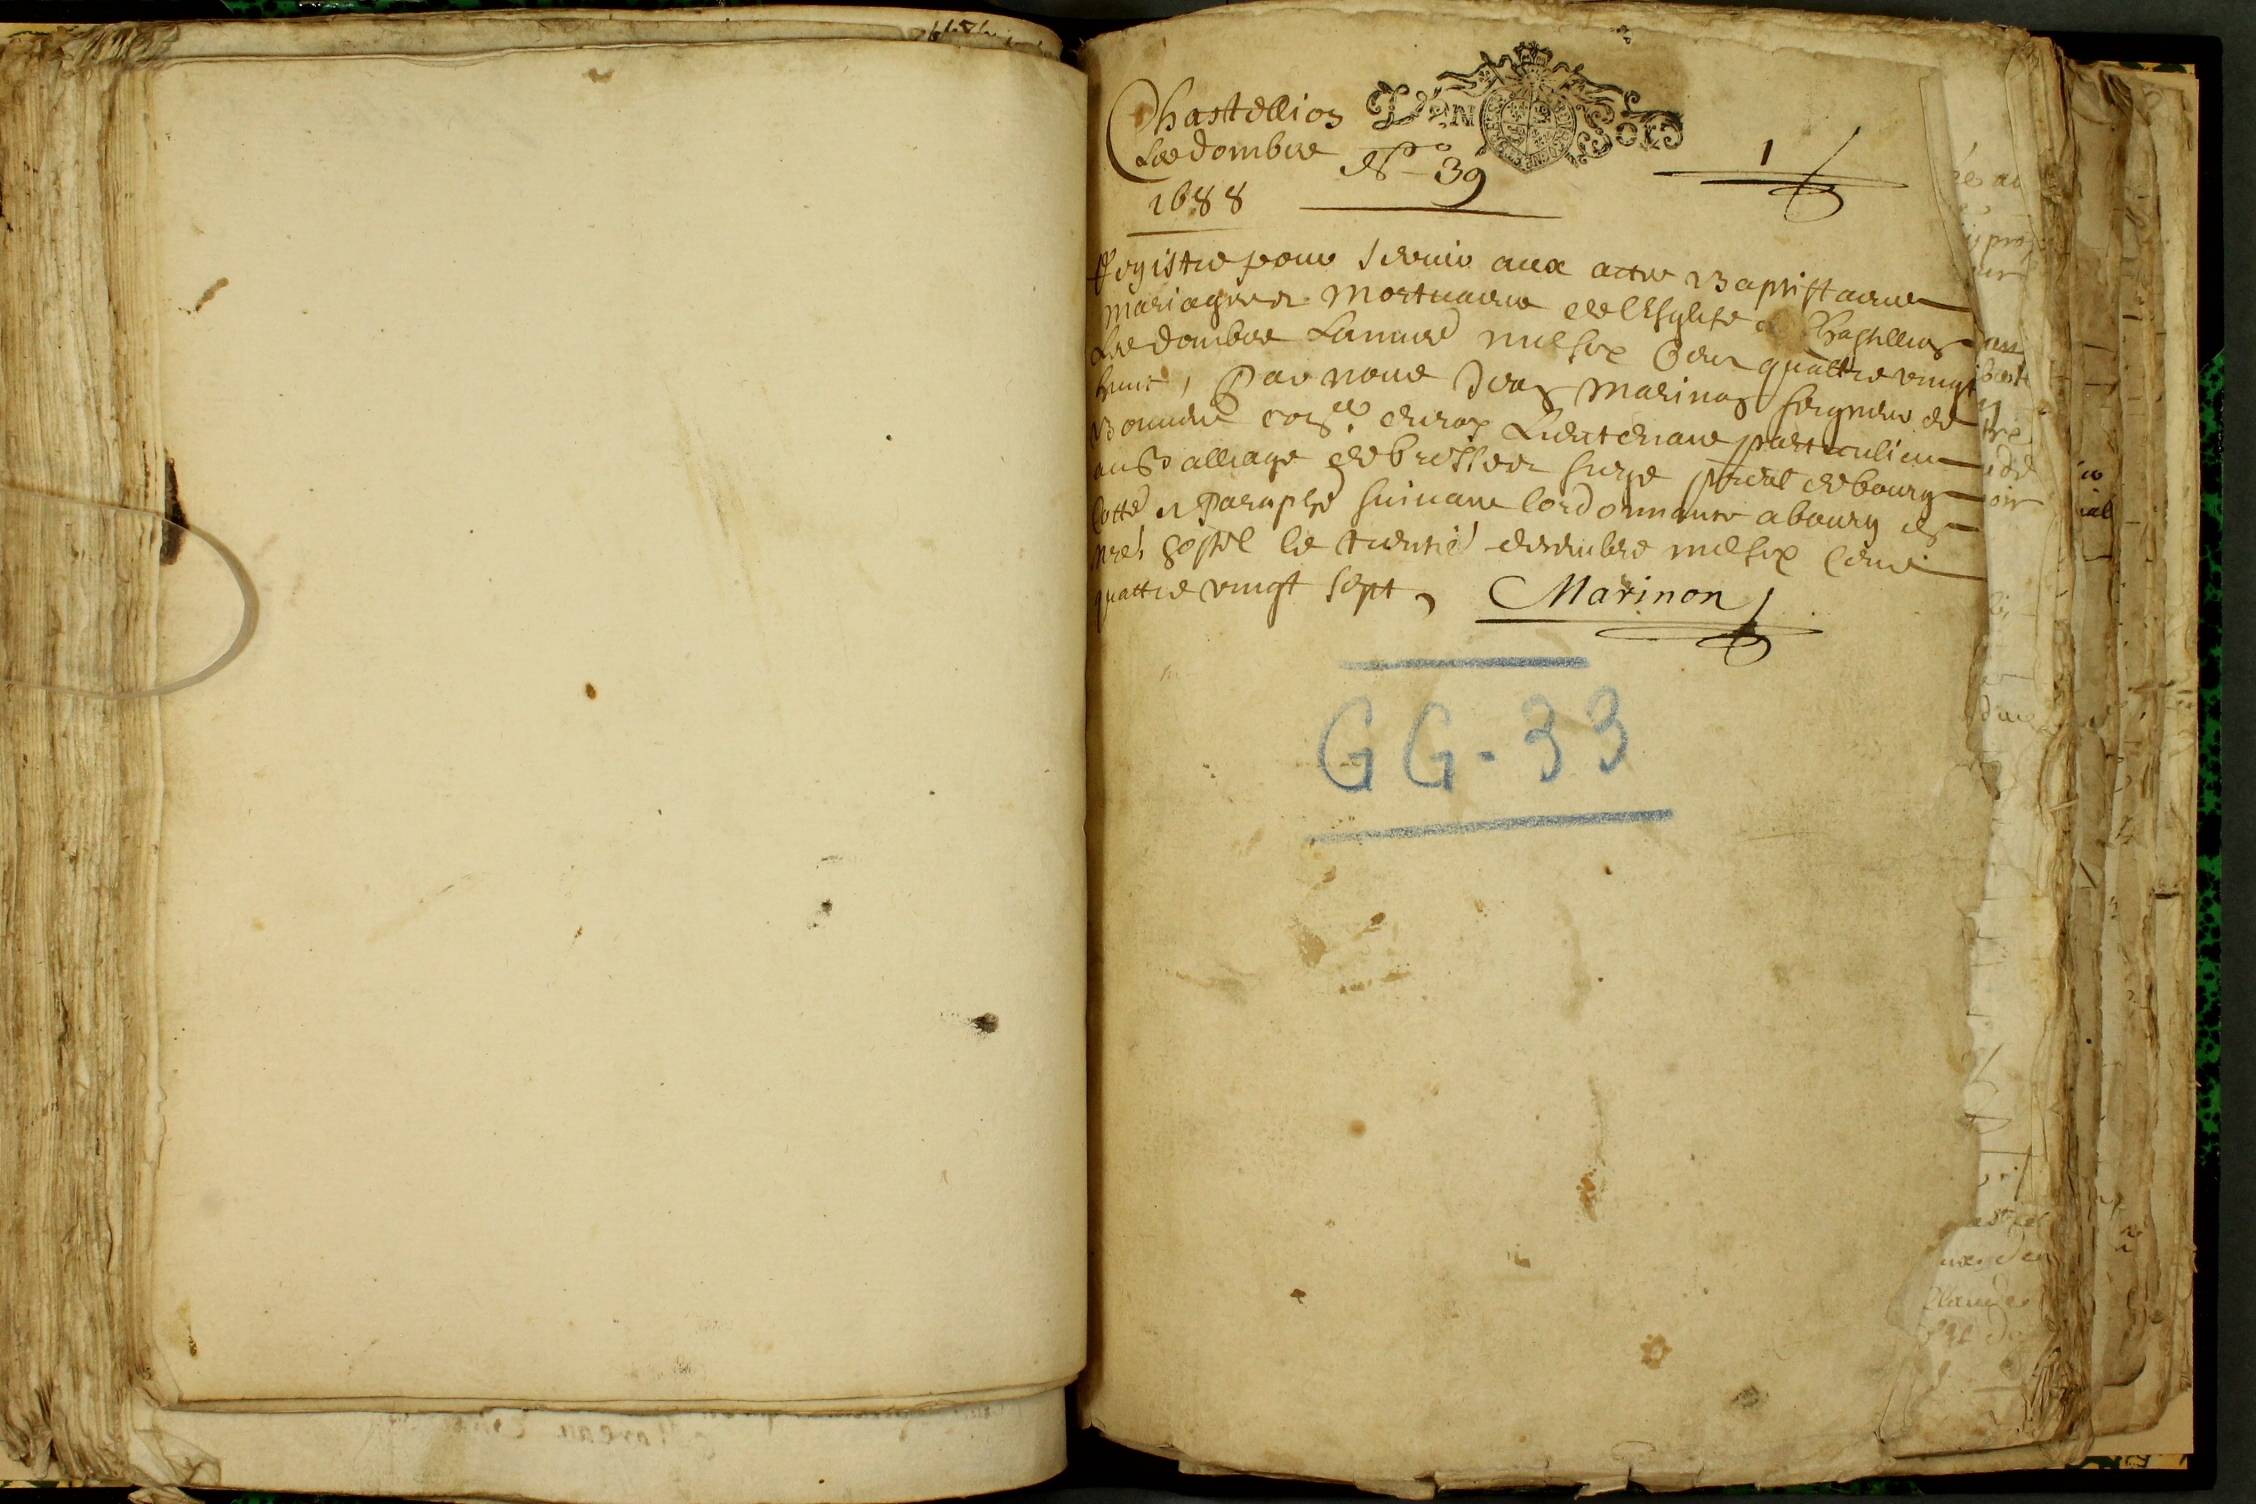 Chastellion
Les dombes
1688
N° 39
UN SOLS
1
Registre pour seruir aux actes Baptistaires
mariages et mortuaires de l'Esglise de Chastellion
Les dombes Lannee mil six Cens quattre vingt
huict, Par nous Jean Marinon seigneur de
conser du roy Lieutenant particulier
au Balliage de bresse et siege presidl de bourg
Cotté et Paraphé suiuant lordonnance a bourg en
nre hostel le trentie decembre mil six Cens
quattre vingt sept
Marinon
GG-33